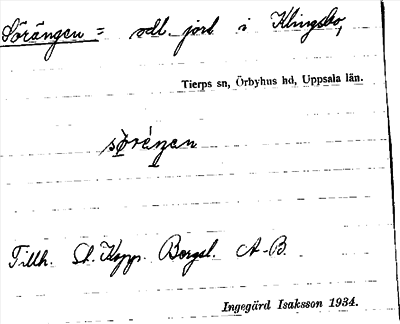 Sörängen = odl. jord i Klingsbo,
Tierps sn, Örbyhus hd, Uppsala län.
Tillh. St. Kopp. Bergsl. A-B.
Ingegärd Isaksson 1934.